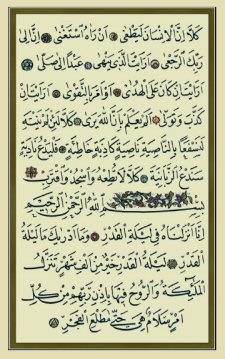 كَلَّا إِنَّ الْإِنْسَانَ لَيَطْغَىٰ ۝ أَنْ رَآهُ اسْتَغْنَىٰ ۝ إِنَّ إِلَىٰ
رَبِّكَ الرُّجْعَىٰ ۝ أَرَأَيْتَ الَّذِي يَنْهَىٰ ۝ عَبْدًا إِذَا صَلَّىٰ ۝
أَرَأَيْتَ إِنْ كَانَ عَلَى الْهُدَىٰ ۝ أَوْ أَمَرَ بِالتَّقْوَىٰ ۝ أَرَأَيْتَ إِنْ
كَذَّبَ وَتَوَلَّىٰ ۝ أَلَمْ يَعْلَمْ بِأَنَّ اللَّهَ يَرَىٰ ۝ كَلَّا لَئِنْ لَمْ يَنْتَهِ
لَنَسْفَعًا بِالنَّاصِيَةِ ۝ نَاصِيَةٍ كَاذِبَةٍ خَاطِئَةٍ ۝ فَلْيَدْعُ نَادِيَهُ ۝
سَنَدْعُ الزَّبَانِيَةَ ۝ كَلَّا لَا تُطِعْهُ وَاسْجُدْ وَاقْتَرِبْ ۝
بِسْمِ اللَّهِ الرَّحْمَٰنِ الرَّحِيمِ
إِنَّا أَنْزَلْنَاهُ فِي لَيْلَةِ الْقَدْرِ ۝ وَمَا أَدْرَاكَ مَا لَيْلَةُ
الْقَدْرِ ۝ لَيْلَةُ الْقَدْرِ خَيْرٌ مِنْ أَلْفِ شَهْرٍ ۝ تَنَزَّلُ
الْمَلَائِكَةُ وَالرُّوحُ فِيهَا بِإِذْنِ رَبِّهِمْ مِنْ كُلِّ
أَمْرٍ ۝ سَلَامٌ هِيَ حَتَّىٰ مَطْلَعِ الْفَجْرِ ۝